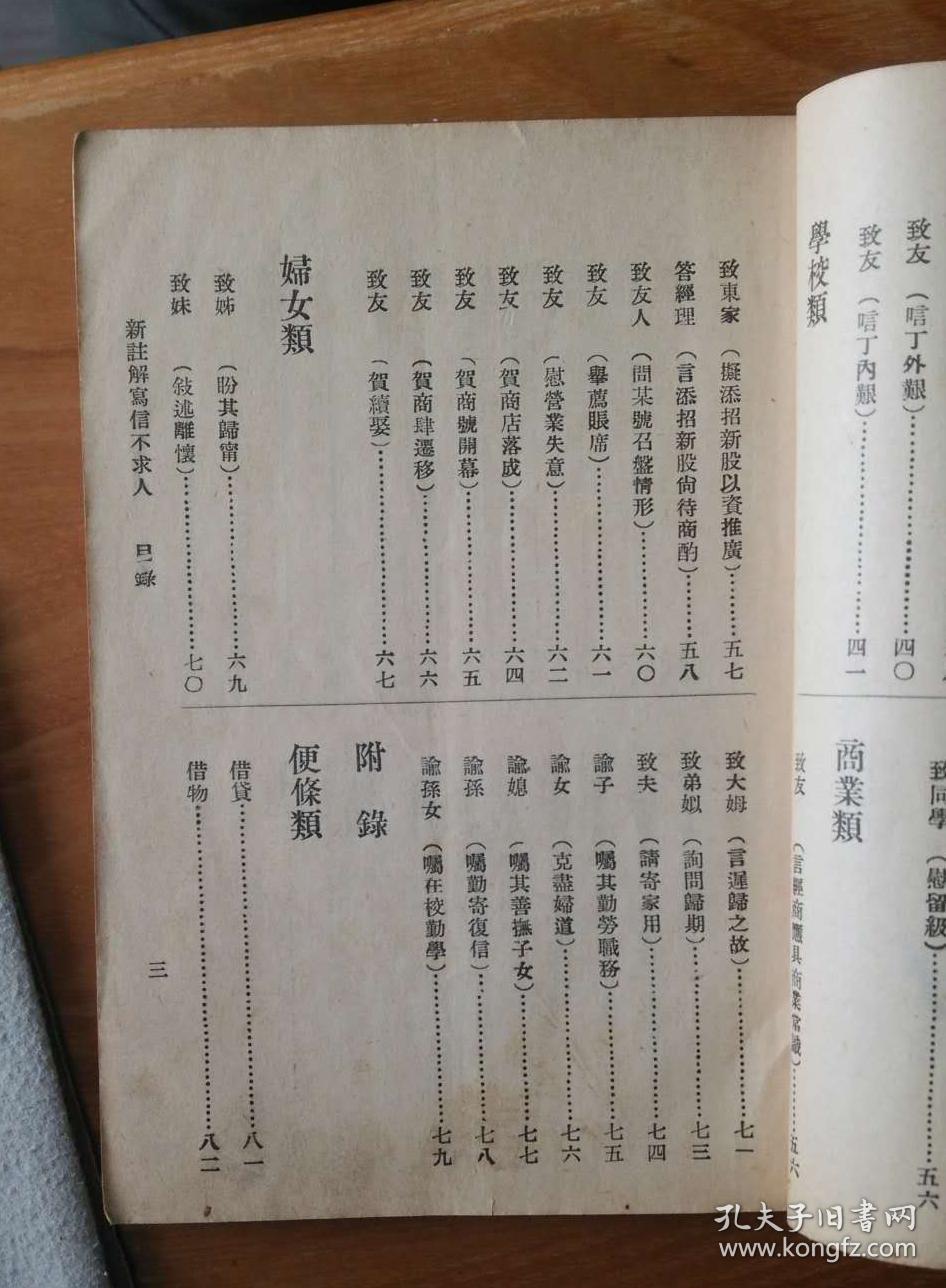 致友 (唁丁外艱)………四〇
致友 (唁丁內艱)………四一
學校類
致同學 (慰留級)………五六
商業類
致友 (言經商應具商業常識)………五六
致東家 (擬添招新股以資推廣)………五七
答經理 (言添招新股尙待商酌)………五八
致友人 (問某號召盤情形)………六〇
致友 (舉薦賬席)………六一
致友 (慰營業失意)………六二
致友 (賀商店落成)………六四
致友 (賀商號開幕)………六五
致友 (賀商肆遷移)………六六
致友 (賀續娶)………六七
婦女類
致姊 (盼其歸甯)………六九
致妹 (敍述離懷)………七〇
致大姆 (言遲歸之故)………七一
致弟姒 (詢問歸期)………七三
致夫 (請寄家用)………七四
諭子 (囑其勤勞職務)………七五
諭女 (克盡婦道)………七六
諭媳 (囑其善撫子女)………七七
諭孫 (囑勤寄復信)………七八
諭孫女 (囑在校勤學)………七九
附錄
便條類
借貸………八一
借物………八二
新註解寫信不求人 目錄 三
孔夫子旧书网
www.kongfz.com